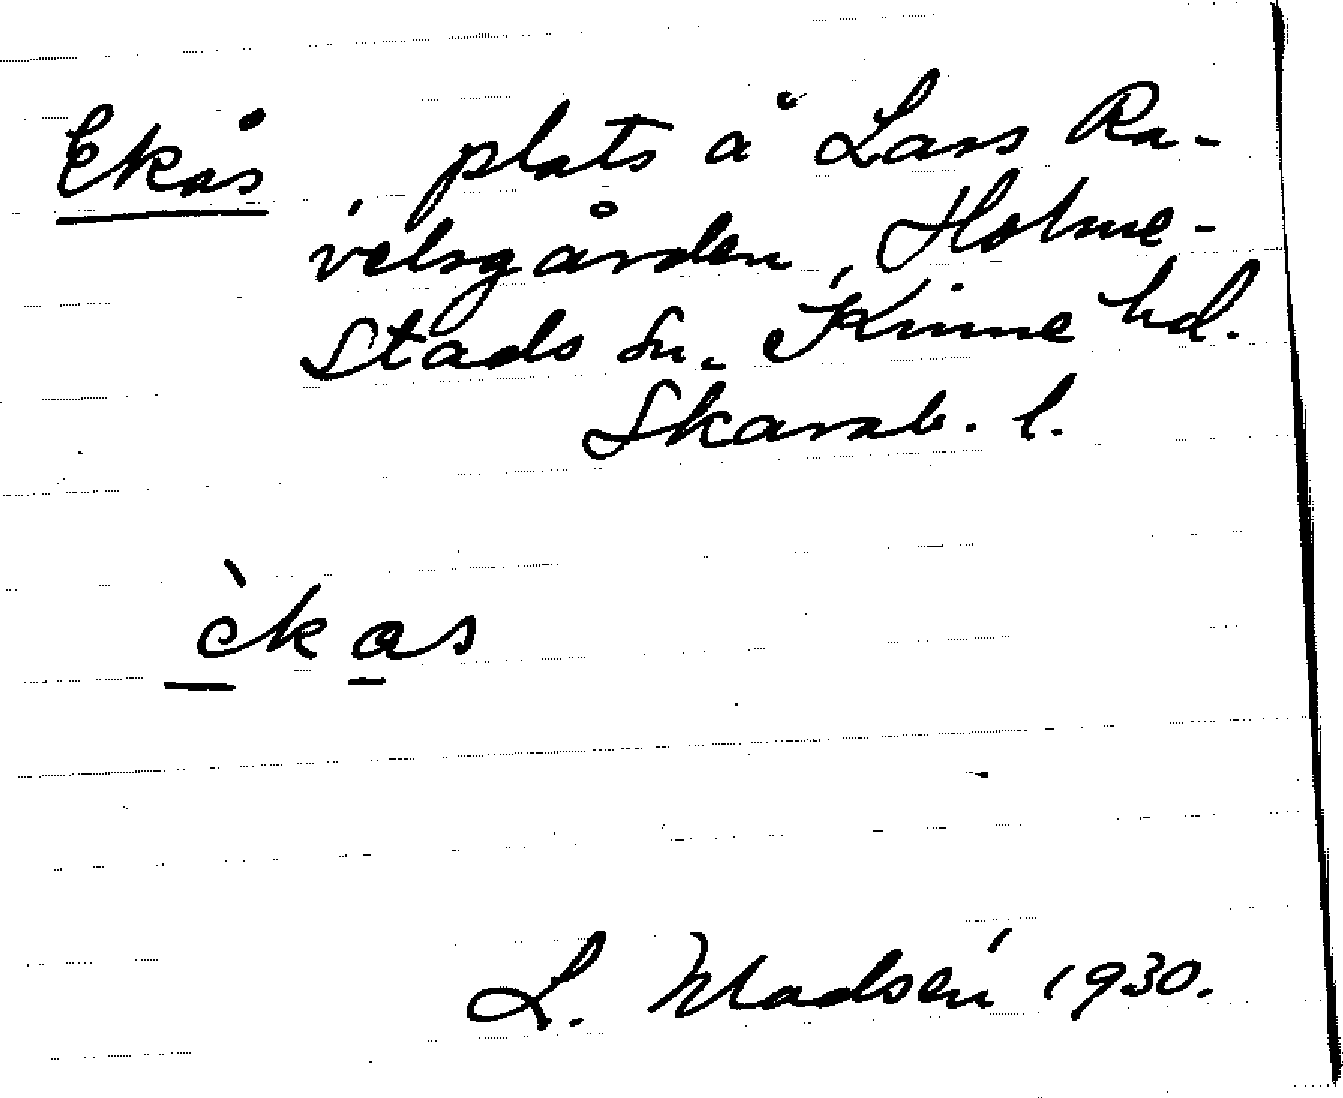 Ekås, plats å Lars Ra-
velsgården, Holme-
stads sn. Kinne hd.
Skarab. l.
èkas
L. Madsén 1930.